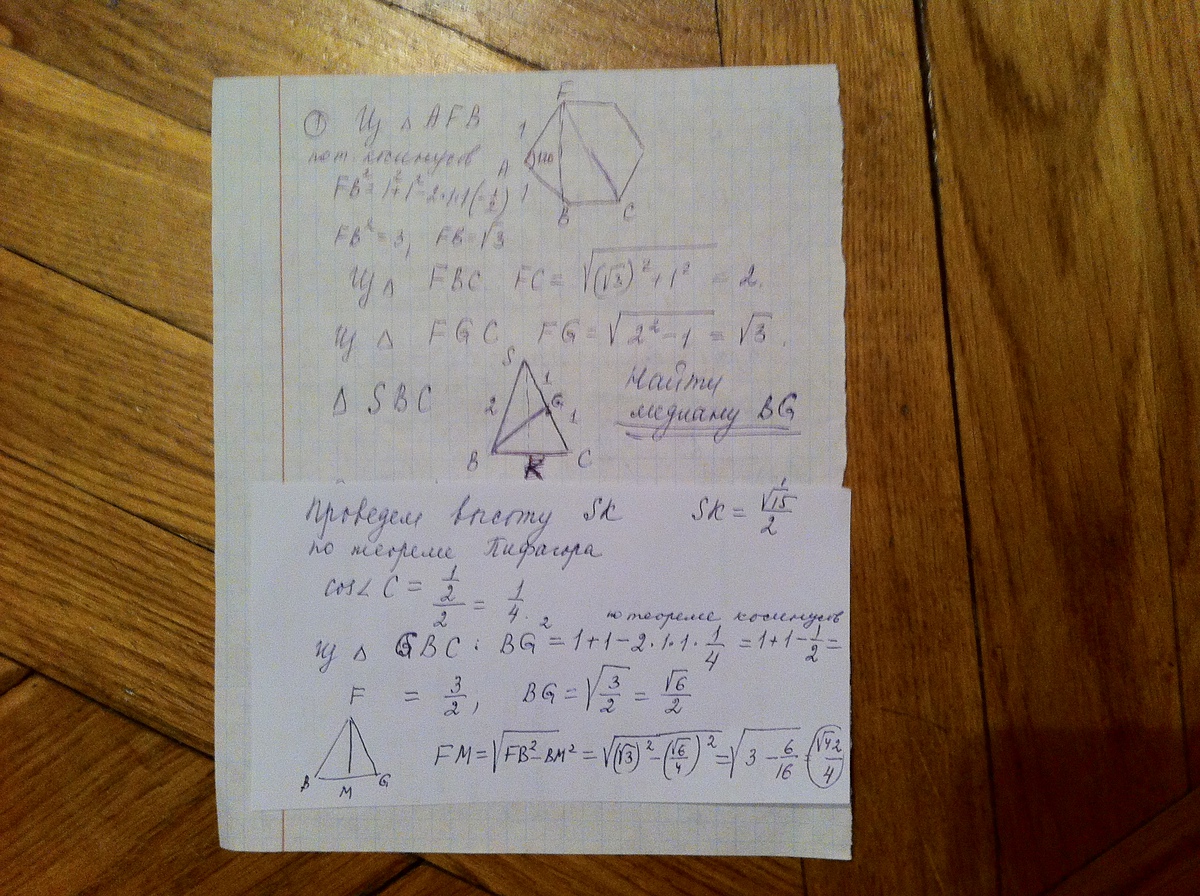 ① Из △ AFB
по т. косинусов
FB² = 1² + 1² - 2·1·1(-1/2)
FB² = 3, FB = √3
F
1
A
120
1
B
C
Из △ FBC FC = √((√3)² + 1²) = 2.
Из △ FGC FG = √(2² - 1) = √3.
△ SBC
S
1
2
G
1
B
K
C
Найти
медиану BG
Проведем высоту SK SK = √15/2
по теореме Пифагора
cos∠C = (1/2)/2 = 1/4.
по теореме косинусов
Из △ GBC: BG² = 1+1-2·1·1·1/4 = 1+1-1/2 =
= 3/2, BG = √(3/2) = √6/2
F
B
M
G
FM = √(FB² - BM²) = √((√3)² - (√6/4)²) = √(3 - 6/16) = √42/4